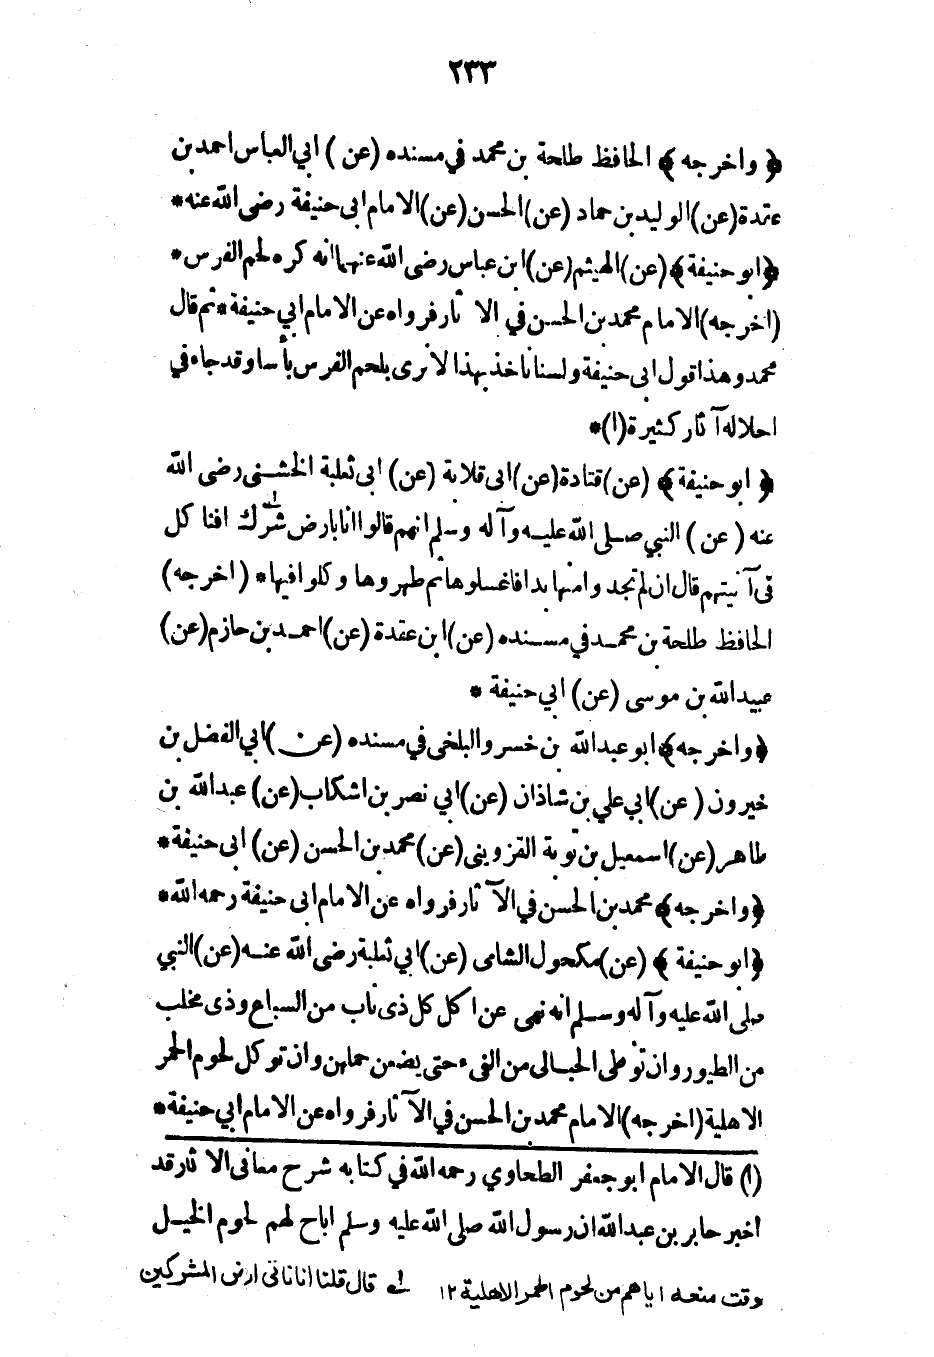 ٢٣٣
﴿ واخرجه ﴾ الحافظ طلحة بن محمد في مسنده (عن) ابي العباس احمد بن
عقدة (عن) الوليد بن حماد (عن) الحسن (عن) الامام ابي حنيفة رضى الله عنه *
﴿ ابو حنيفة ﴾ (عن) الهيثم (عن) ابن عباس رضى الله عنهما انه كره لحم الفرس *
(اخرجه) الامام محمد بن الحسن في الاثار فرواه عن الامام ابي حنيفة * ثم قال
محمد وهذا قول ابى حنيفة ولسنا نأخذ بهذا لا نرى بلحم الفرس بأسا وقد جاء في
احلاله آثار كثيرة (١) *
﴿ ابو حنيفة ﴾ (عن) قتادة (عن) ابى قلابة (عن) ابى ثعلبة الخشنى رضى الله
عنه (عن) النبي صلى الله عليه وآله وسلم انهم قالوا انا بارض شرك افنا كل
فى آنيتهم قال ان لم تجدوا منها بدا فاغسلوها ثم طهروها وكلوا فيها * (اخرجه)
الحافظ طلحة بن محمد في مسنده (عن) ابن عقدة (عن) احمد بن حازم (عن)
عبيد الله بن موسى (عن) ابي حنيفة *
﴿ واخرجه ﴾ ابو عبد الله بن خسرو البلخى في مسنده (عن) ابي الفضل بن
خيرون (عن) ابي علي بن شاذان (عن) ابي نصر بن اشكاب (عن) عبد الله بن
طاهر (عن) اسمعيل بن توبة القزوينى (عن) محمد بن الحسن (عن) ابى حنيفة *
﴿ واخرجه ﴾ محمد بن الحسن في الآثار فرواه عن الامام ابى حنيفة رحمه الله *
﴿ ابو حنيفة ﴾ (عن) مكحول الشامى (عن) ابي ثعلبة رضى الله عنه (عن) النبي
صلى الله عليه وآله وسلم انه نهى عن اكل كل ذى ناب من السباع وذى مخلب
من الطيور وان توطى الحبالى من الفىء حتى يضعن حملهن وان توكل لحوم الحمر
الاهلية (اخرجه) الامام محمد بن الحسن في الآثار فرواه عن الامام ابي حنيفة *
(١) قال الامام ابو جعفر الطحاوي رحمه الله في كتابه شرح معانى الاثار قد
اخبر جابر بن عبد الله ان رسول الله صلى الله عليه وسلم اباح لهم لحوم الخيل
وقت منعه اياهم من لحوم الحمر الاهلية ١٢ قال قلنا انا ناتى ارض المشركين